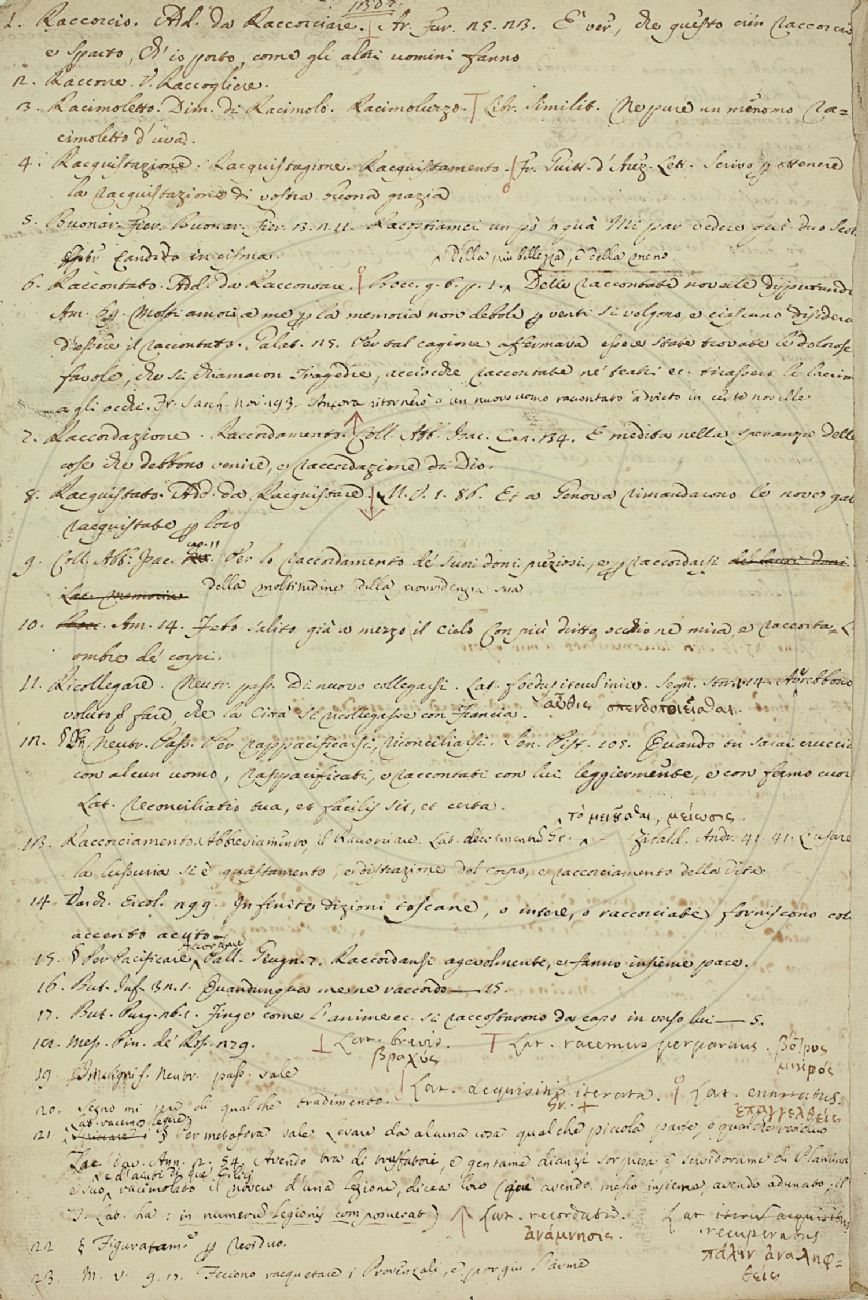 1. Raccorcio. Add. da Raccorciare. Ar. Fur. 25. 23. E ver, che questo crin raccorcio
e sparto, ch'io porto, come gli altri uomini fanno
2. Raccorre. V. Raccogliere.
3. Racimoletto. Dim. di Racimolo. Racimoluzzo. Libr. Similit. Neppure un menomo ra=
cimoletto d'uva.
4. Racquistazione. Racquistagione. Racquistamento. Fr. Guitt. d'Arez. Lett. Scrivo p ottenere
la racquistazione di vostra buona grazia
5. Buonar. Fier. Buonar. Fier. 3. 2. 11. un pò 'n quà Mi par vedere quì duo
Candido in cisma. della più bellezza, e della meno
6. Raccontato. Add. da Raccontare. Bocc. g. 6. p. 1. Delle raccontate novelle disputando
Am. 69. Molti amori a me p la memoria non debole p venti si volgono, e ciascuno disidera
d'essere il raccontato. Galat. 25. Per tal cagione affermava essere state trovate le dolorose
favole, che si chiamaron Tragedie, acciocchè raccontate ne' teatri ec. tirassero le lacrim
a gli occhi. Fr. Sacch. nov. 193. Ancora ritornerò a un nuovo uomo raccontato adrieto in certe novelle
7. Raccordazione. Raccordamento. Coll. Abb. Isac. Cap. 34. E medita nella speranza delle
cose che debbono venire, e raccordazione di Dio.
8. Racquistato. Add. da Racquistare M. V. 1. 86. Et a Genova rimandarono le nove gal
racquistate p loro
9. Coll. Abb. Isac. cap. 11. Per lo raccordamento de' suoi doni preziosi, e p raccordarsi del
Lat. memoria della moltitudine della provvidenza sua
10. Am. 14. Febo salito già a mezzo il cielo con più dritto occhio ne mira, e raccorta l'
ombre de' corpi.
11. Ricollegare. Neutr. pass. Di nuovo collegarsi. Lat. foedus iterum inire. Segn. Stor. 14. Avrebbono
voluto fare, che la Città si ricollegasse con Francia. αὖθις σπενδοποιεῖσθαι.
12. § Neutr. Pass. Per rappacificarsi, riconciliarsi. Sen. Pist. 105. Quando tu sarai crucci
con alcun uomo, rappacificati, e raccontati con lui leggiermente, e con fermo cuor
Lat. reconciliatio tua, et facilis sit, et certa.
13. Raccorciamento. Abbreviamento, il Raccorciare. Lat. decrementum Gr. τὸ μειοῦσθαι, μείωσις. Zibald. Andr. 41. 41. L'usare
la lussuria si è guastamento, e distrazione del corpo, e raccorciamento della vita
14. Varch. Ercol. 299. Infinite dizioni toscane, o intere, o raccorciate forniscono col
accento acuto
15. § Per Pacificare Accordare Pall. Giugn. 7. Raccordansi agevolmente, e fanno insieme pace.
16. But. Inf. 3. 2. 1. Quandunque me ne raccordo — 15.
17. But. Purg. 26. 1. Finge come l'anime ec. si raccostarono da capo in verso lui — 5.
18. Mess. Pin. de' Ross. 279. Lat. brevis. βραχύς Lat. racemus perparvus. βότρυς μικρός
19. Neutr. pass. vale
20. Segno mi par di qualche tradimento. Lat. acquisitio iterata. Gr. Lat. enarratus. ἐπαγγελθείς
21. § Per metafora vale Levare da alcuna cosa qualche piccola parte, o qualche residuo
Tac. Dav. Ann. 2. 84. Avendo tra di truffatori, e gentame dianzi sorpresa e servidorame di Plancina
e suo, e d'aiuti di que' Cilici racimolato il novero d'una legione, dicea loro (qui avendo messo insieme, avendo adunato, il
T. Lat. ha: in numerum legionis composuerat) Lat. recordatio. ἀνάμνησις. Lat. iterum acquisitus recuperatus πάλιν ἀναληφ=θείς
22 § Figuratam.e p Residuo.
23. M. V. 9. Feciono racquetare i Provenzali, e porgiu l'arme